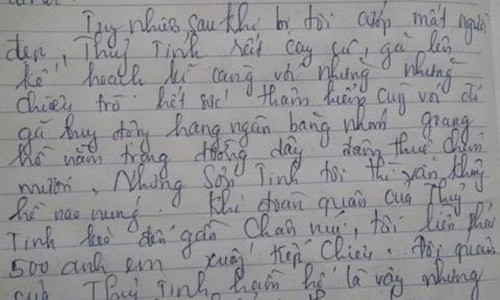 Tuy nhiên, sau khi bị tôi cướp mất người
đẹp, Thuỷ Tinh rất cay sực, gã lên
kế hoạch kĩ càng với những những
chiêu trò hết sức thâm hiểm cùng với đó
gã huy động hàng ngàn băng nhóm giang
hồ nằm trong đường dây đâm thuê chém
mướn. Nhưng Sơn Tinh tôi thì vẫn không
hề nao núng. Khi đoàn quân của Thuỷ
Tinh kéo đến gần chân núi, tôi liền phái
500 anh em xuống tiếp chiêu. Đội quân
của Thuỷ Tinh hầm hố là vậy nhưng